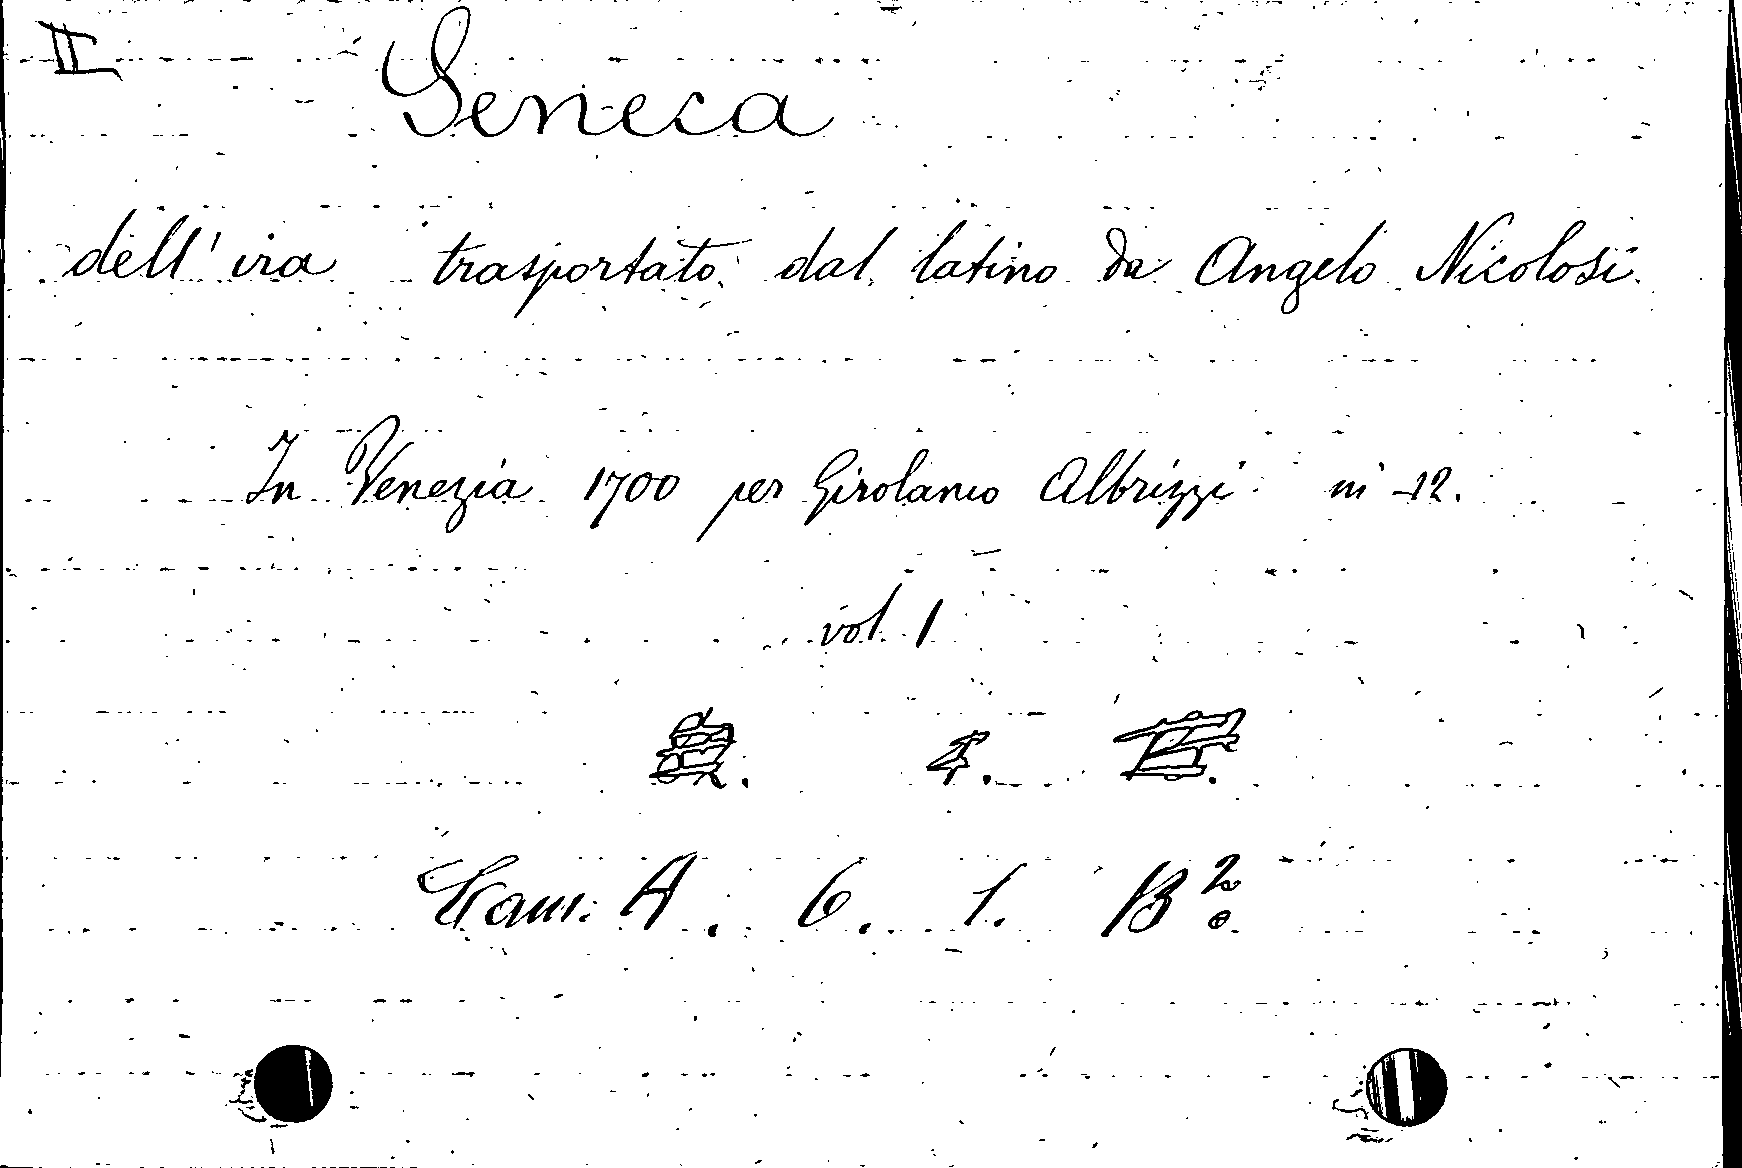 II
Seneca
dell'ira trasportato dal latino da Angelo Nicolosi
In Venezia 1700 per Girolamo Albrizzi in -12.
vol. 1
4.
Cam. A. 6. 1. B²